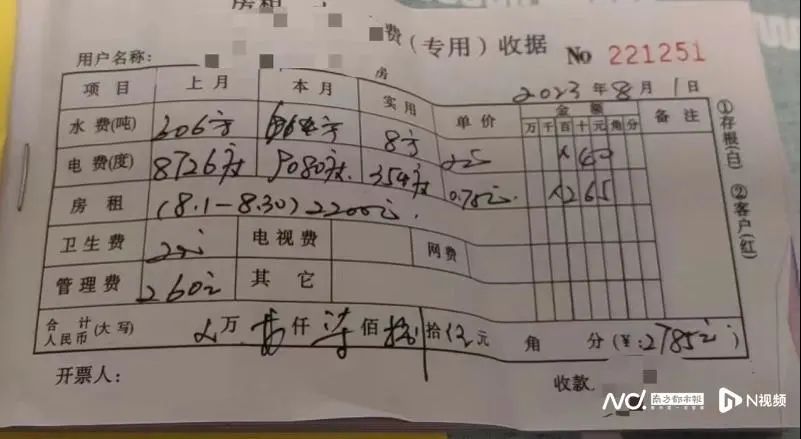 房租
费(专用)收据 No 221251
用户名称:
房
2023年8月1日
项目 上月 本月 实用 单价 金额 备注
万 千 百 十 元 角 分
水费(吨) 8方 60
电费(度) 8726度 9080度 354度 0.75元 265
房租 (8.1-8.30) 2200元
卫生费 电视费 网费
管理费 260元 其它
合计人民币(大写) 万 仟 柒佰 捌拾伍元 角 分(¥:2785元)
开票人: 收款
①存根(白) ②客户(红)
南方都市报 N视频